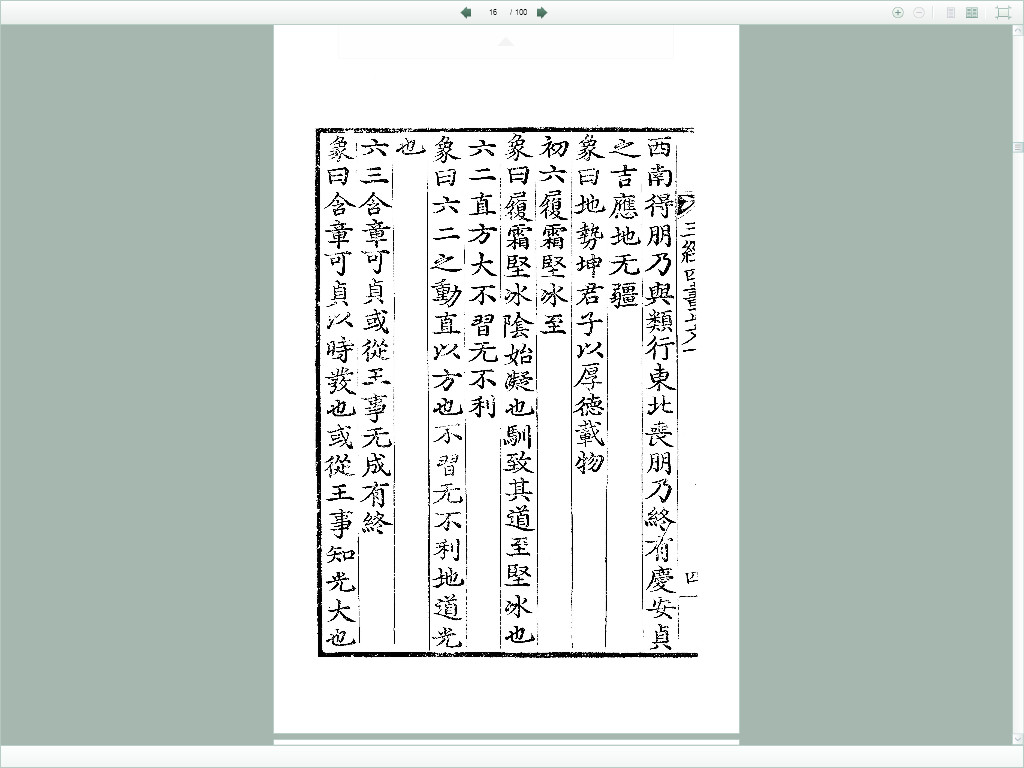 16 / 100
三經四書正文一
四
西南得朋乃與類行東北喪朋乃終有慶安貞
之吉應地无疆
象曰地勢坤君子以厚德載物
初六履霜堅冰至
象曰履霜堅冰陰始凝也馴致其道至堅冰也
六二直方大不習无不利
象曰六二之動直以方也不習无不利地道光
也
六三含章可貞或從王事无成有終
象曰含章可貞以時發也或從王事知光大也